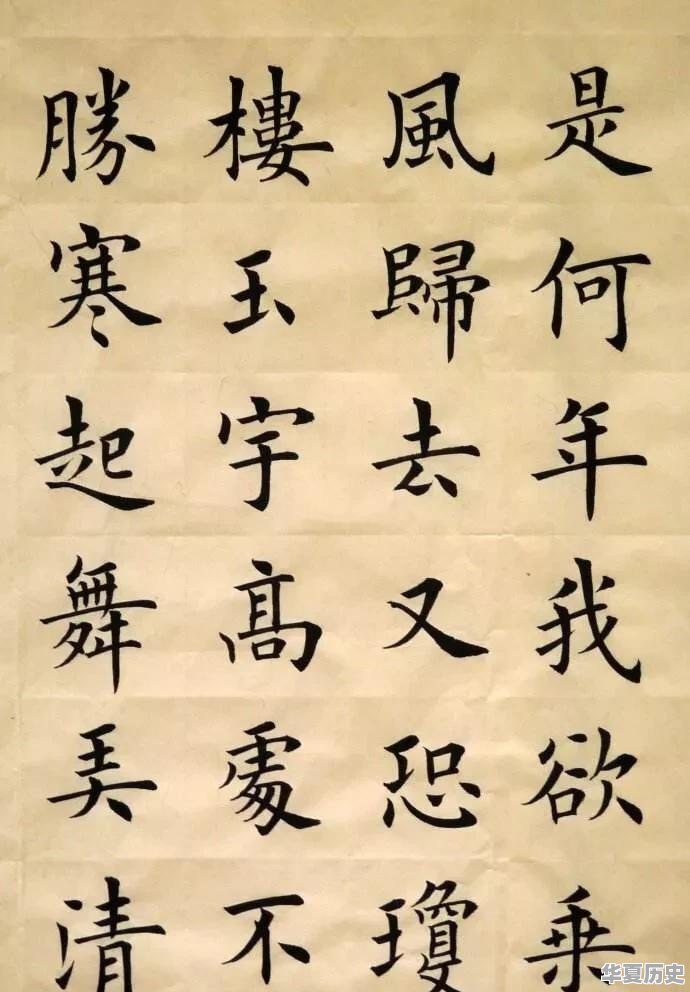 是何年我欲乘
風歸去又恐瓊
樓玉宇高處不
勝寒起舞弄清
华夏历史